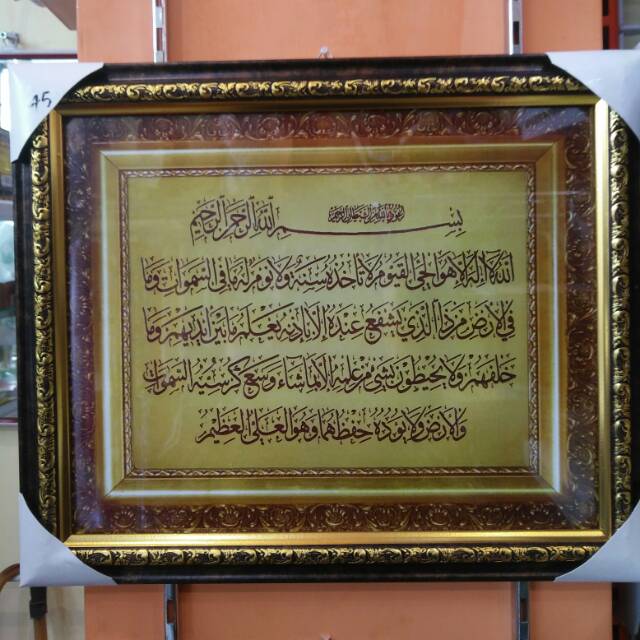 45
أعوذ بالله من الشيطان الرجيم
بسم الله الرحمن الرحيم
الله لا إله إلا هو الحي القيوم لا تأخذه سنة ولا نوم له ما في السموات وما
في الأرض من ذا الذي يشفع عنده إلا بإذنه يعلم ما بين أيديهم وما
خلفهم ولا يحيطون بشيء من علمه إلا بما شاء وسع كرسيه السموات
والأرض ولا يؤده حفظهما وهو العلي العظيم